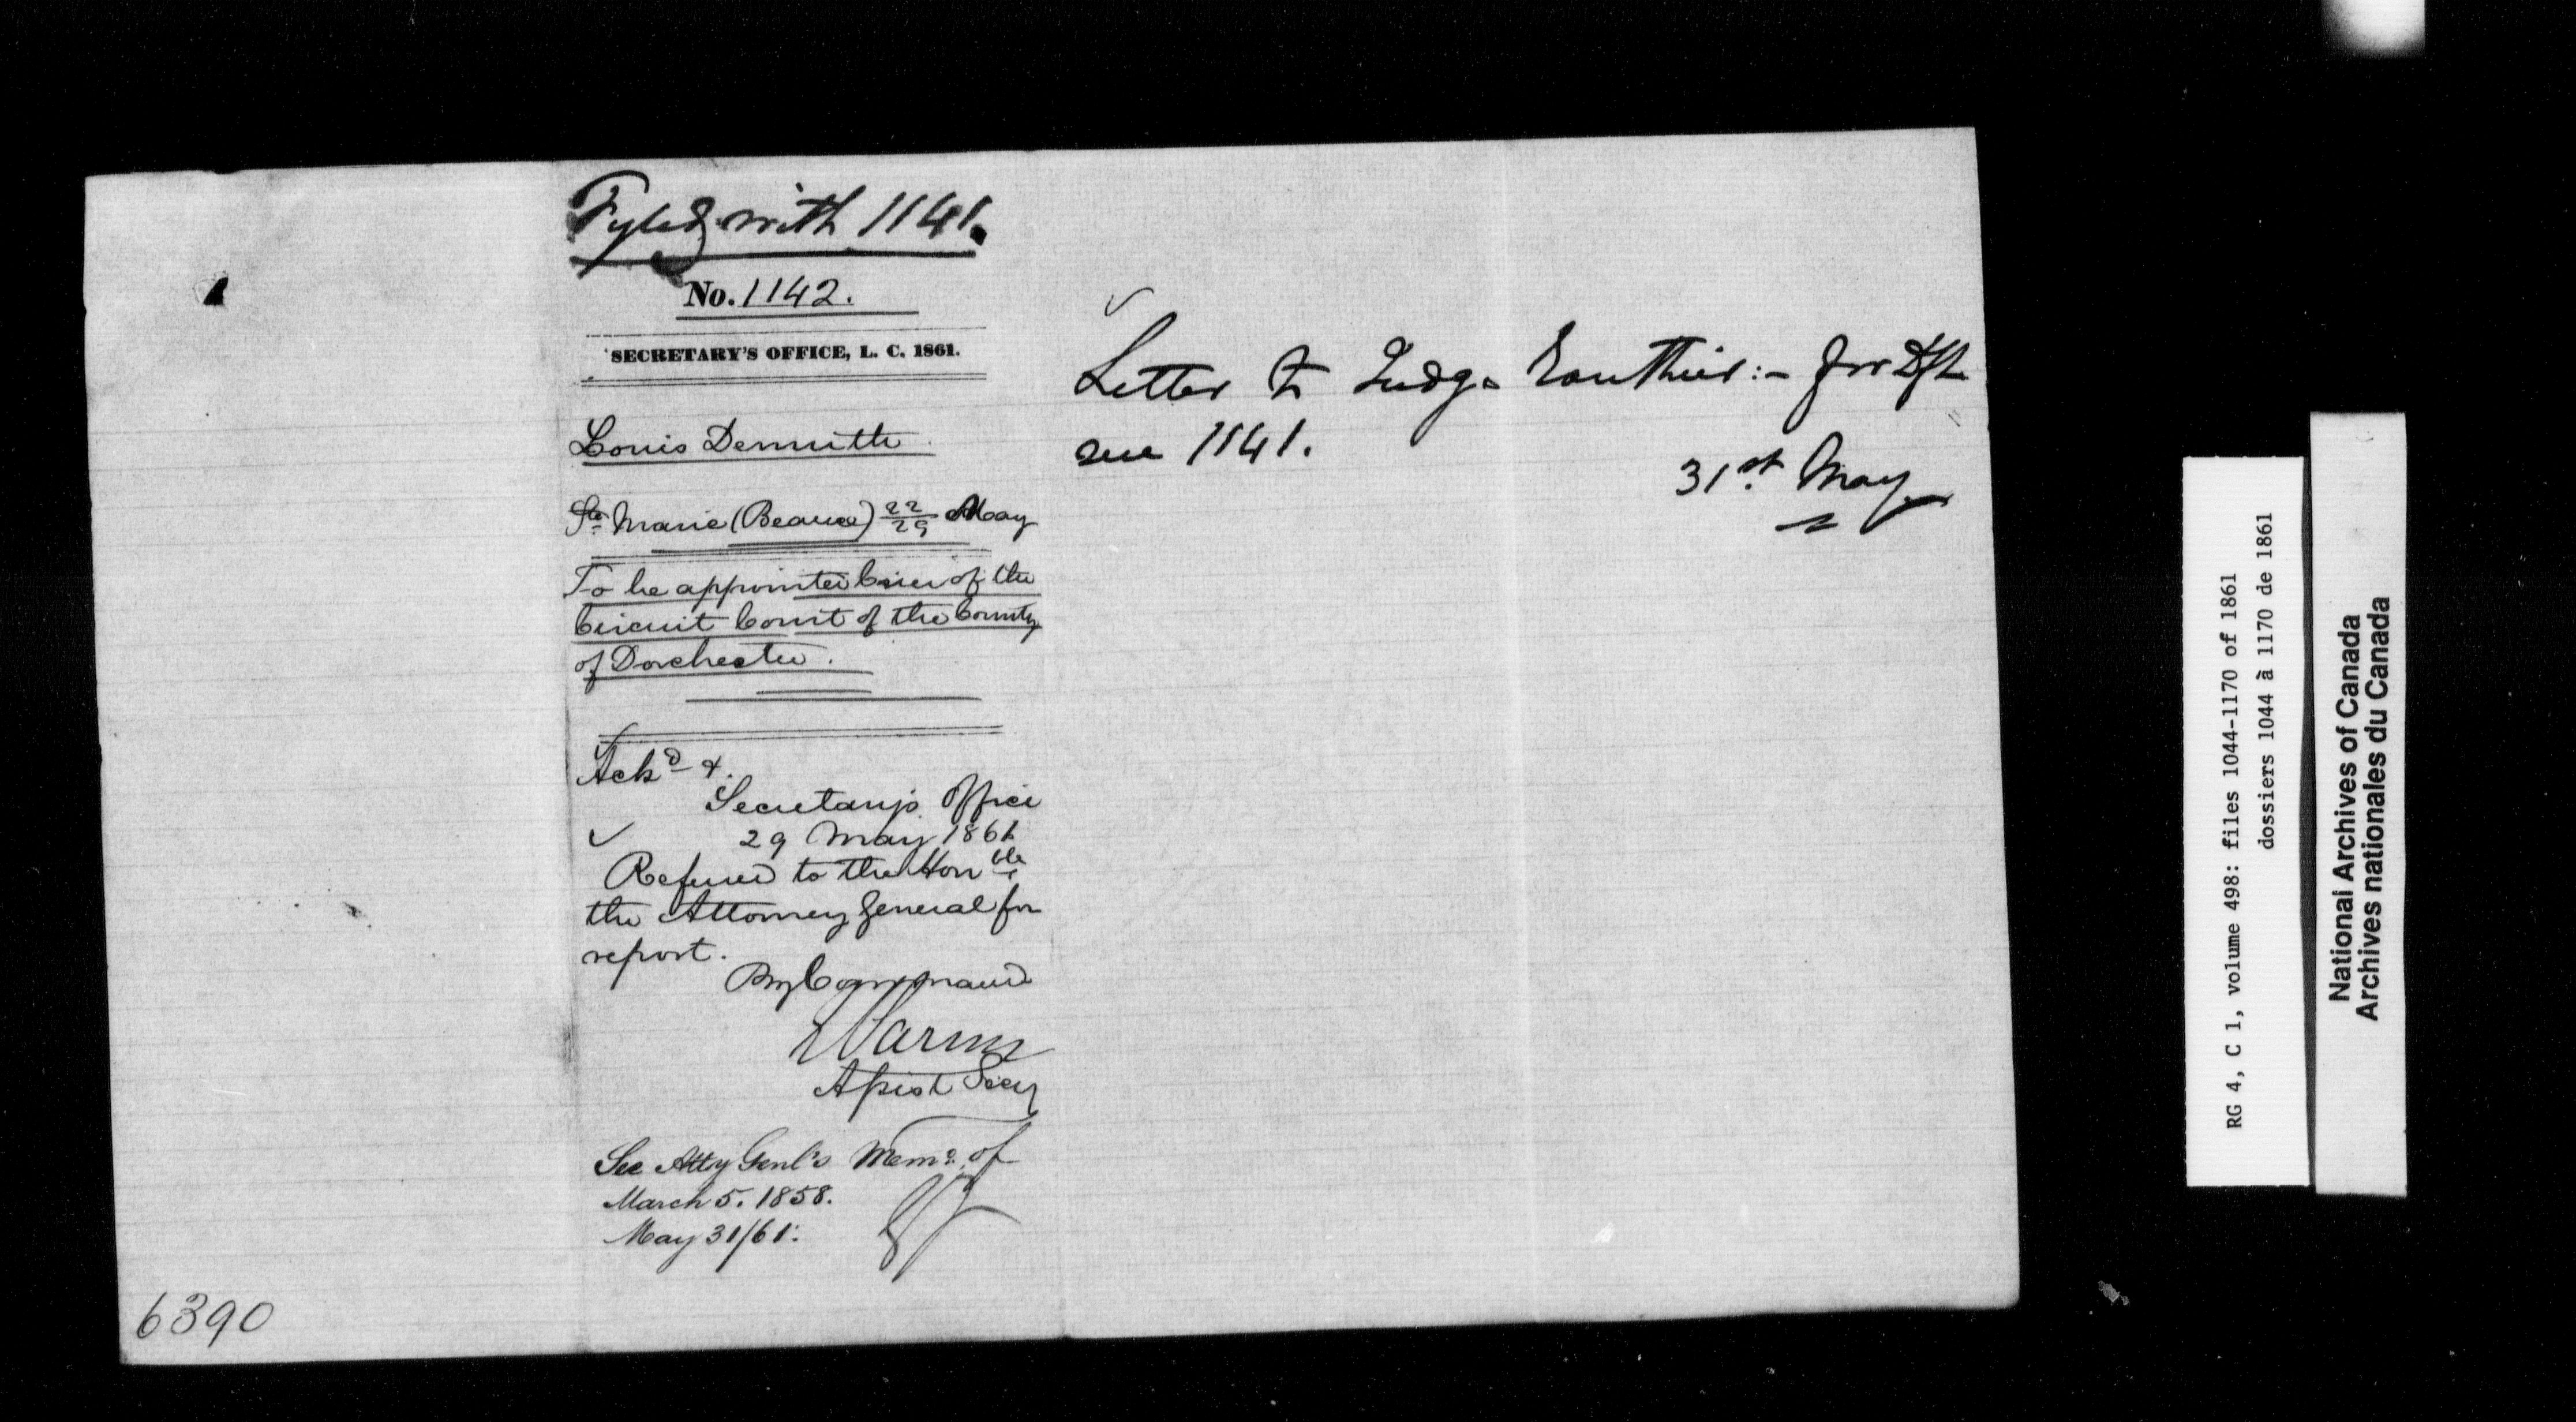 Fyled with 1141.
No. 1142.
SECRETARY'S OFFICE, L. C. 1861.
Louis Demuth
Ste Marie (Beauce) 22/29 May
To be appointed Crier of the
Circuit Court of the County
of Dorchester.
Ackd &.
Secretary's Office
29 May 1861
Referred to the Honble
the Attorney General for
report.
By Command
Asist Secy
See Atty Genl's Memo. of
March 5. 1858.
May 31/61.
Letter to Judge Gauthier :- for Dft
see 1141.
31st May
6390
RG 4, C 1, volume 498: files 1044-1170 of 1861
dossiers 1044 à 1170 de 1861
National Archives of Canada
Archives nationales du Canada